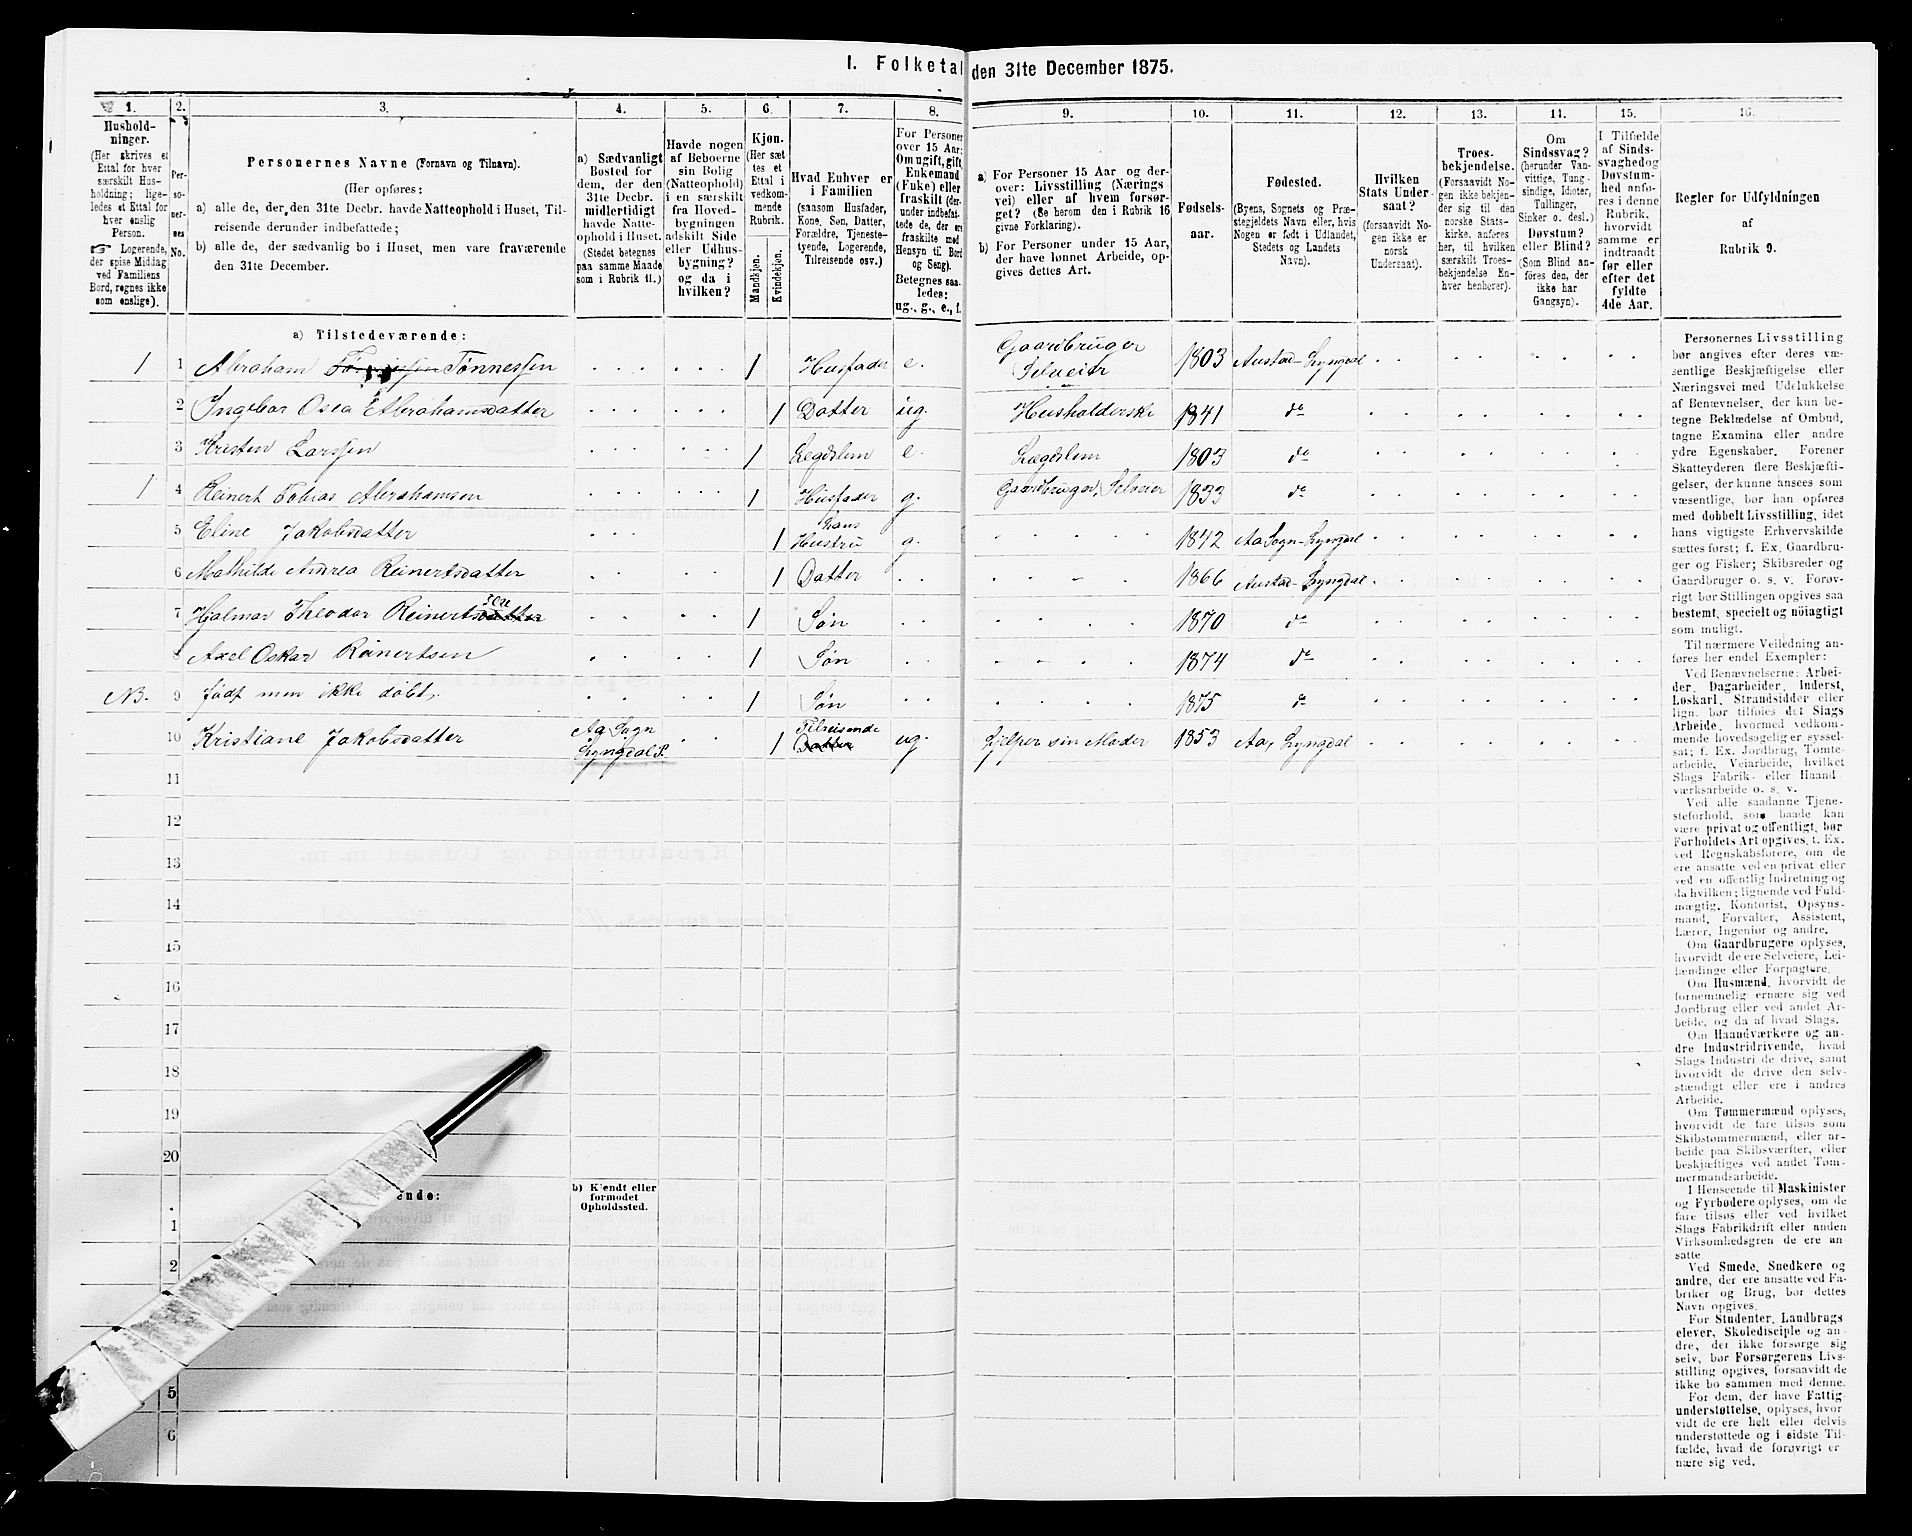 I. Folketal den 31te December 1875.
1. 2. 3. 4. 5. 6. 7. 8. 9. 10. 11. 12. 13. 14. 15. 16.
Hushold-
ninger.
(Her skrives et
Ettal for hver
særskilt Hus-
holdning; lige-
ledes et Ettal for
hver enslig
Person.
☞ Logerende,
der spise Middag
ved Familiens
Bord, regnes ikke
som enslige).
Per-
so-
ner-
nes
No.
Personernes Navne (Fornavn og Tilnavn).
(Her opføres:
a) alle de, der den 31te Decbr. havde Natteophold i Huset, Til-
reisende derunder indbefattede;
b) alle de, der sædvanlig bo i Huset, men vare fraværende
den 31te December.
a) Sædvanligt
Bosted for
dem, der den
31te Decbr.
midlertidigt
havde Natte-
ophold i Huset.
(Stedet betegnes
paa samme Maade
som i Rubrik 11.)
Havde nogen
af Beboerne
sin Bolig
(Natteophold)
i en særskilt
fra Hoved-
bygningen
adskilt Side
eller Udhus-
bygning?
og da i
hvilken?
Kjøn.
(Her sæt
et
Ettal i
vedkom-
mende
Rubrik.
Mandkjøn.
Kvindekjøn.
Hvad Enhver er
i Familien
(saasom Husfader,
Kone, Søn, Datter,
Forældre, Tjeneste-
tyende, Logerende,
Tilreisende osv.)
For Personer
over 15 Aar:
Om ugift, gift,
Enkemand
(Enke) eller
fraskilt (der-
under indbefat-
tede de, der ere
fraskilte med
Hensyn til Bord
og Seng).
Betegnes saa-
ledes:
ug., g., e., f.
a) For Personer 15 Aar og der-
over: Livsstilling (Nærings
vei) eller af hvem forsør-
get? (Se herom den i Rubrik 16
givne Forklaring).
b) For Personer under 15 Aar,
der have lønnet Arbeide, op-
gives dettes Art.
Fødsels-
aar.
Fødested.
(Byens, Sognets og Præ-
stegjeldets Navn eller, hvis
Nogen er født i Udlandet,
Stedets og Landets
Navn).
Hvilken
Stats Under-
saat?
(forsaavidt No-
gen ikke er
norsk
Undersaat).
Troes-
bekjendelse.
(Forsaavidt No-
gen ikke bekjen-
der sig til den
norske Stats-
kirke, anføres
her, til hvilken
særskilt Troes-
bekjendelse En-
hver henhører).
Om
Sindssvag?
(herunder Van-
vittige, Tung-
sindige, Idioter,
Tullinger,
Sinker o. desl.)
Døvstum?
eller Blind?
(Som Blind an-
føres den, der
ikke har
Gangsyn).
I Tilfælde
af Sinds-
svaghed og
Døvstum-
hed anfø-
res i denne
Rubrik,
hvorvidt
samme er
indtraadt
før eller
efter det
fyldte
4de Aar.
Regler for Udfyldningen
af
Rubrik 9.
a) Tilstedeværende:
1 1 Abraham Tønnessen 1 Husfader e. Gaardbruger Selveier 1803 Austad-Lyngdal
2 Ingebor Osea Abrahamsdatter 1 Datter ug. Husholderske 1841 do
3 Kristen Larssen 1 Legdslem e. Lægdslem 1803 do
1 4 Reinert Tobias Abrahamsen 1 Husfader g. Gaardbruger, Selveier 1833 do
5 Eline Jakobsdatter 1 hans Hustru g. 1842 Aa Sogn-Lyngdal
6 Mathilde Andrea Reinertsdatter 1 Datter 1866 Austad-Lyngdal
7 Hjalmar Theodor Reinertsdatter sen 1 Søn 1870 do
8 Axel Oskar Reinertsen 1 Søn 1874 do
NB. 9 født men ikke døbt, 1 Søn 1875 do
10 Kristiane Jakobsdatter Aa Sogn Lyngdal P. 1 Tilreisende Datter ug. hjelper sin Moder 1853 Aa, Lyngdal
11
12
13
14
15
16
17
18
19
20
ende:
b) Kjendt eller
formodet
Opholdssted.
1
2
5
6
Personernes Livsstilling
bør angives efter deres væ-
sentlige Beskjæftigelse eller
Næringsvei med Udelukkelse
af Benævnelser, der kun be-
tegne Beklædelse af Ombud,
tagne Examina eller andre
ydre Egenskaber. Forener
Skatteyderen flere Beskjæfti-
gelser, der kunne ansees som
væsentlige, bør han opføres
med dobbelt Livsstilling, idet
hans vigtigste Erhvervskilde
sættes først; f. Ex. Gaardbru-
ger og Fisker; Skibsreder og
Gaardbruger o. s. v. Forøv-
rigt bør Stillingen opgives saa
bestemt, specielt og nöiagtigt
som muligt.
Til nærmere Veiledning an-
føres her endel Exempler:
Ved Benævnelserne: Arbei-
der, Dagarbeider, Inderst,
Løskarl, Strandsidder eller
lign. bør tilføies det Slags
Arbeide, hvormed vedkom-
mende hovedsagelig er syssel-
sat; f. Ex. Jordbrug, Tomte-
arbeide, Veiarbeide, hvilket
Slags Fabrik- eller Haand-
værksarbeide o. s. v.
Ved alle saadanne Tjene-
steforhold, som baade kan
være privat og offentligt, bør
Forholdets Art opgives, f. Ex.
ved Regnskabsførere, om de
ere ansatte ved en privat eller
ved en offentlig Indretning og
da hvilken; lignende ved Fuld-
mægtig, Kontorist, Opsyns-
mand, Forvalter, Assistent,
Lærer, Ingeniør og andre.
Om Gaardbrugere oplyses,
hvorvidt de ere Selveiere, Lei-
lændinge eller Forpagtere.
Om Husmænd, hvorvidt de
fornemmelig ernære sig ved
Jordbrug eller ved andet Ar-
beide, og da af hvad Slags.
Om Haandværkere og an-
dre Industridrivende, hvad
Slags Industri de drive, samt
hvorvidt de drive den selv-
stændigt eller ere i andres
Arbeide.
Om Tømmermænd oplyses,
hvorvidt de fare tilsøs som
Skibstømmermænd, eller ar-
beide paa Skibsværfter, eller
beskjæftiges ved andet Tøm-
mermandsarbeide.
I Henseende til Maskinister
og Fyrbødere oplyses, om de
fare tilsøs eller ved hvilket
Slags Fabrikdrift eller anden
Virksomhedsgren de ere an-
satte.
Ved Smede, Snedkere og
andre, der ere ansatte ved Fa-
briker og Brug, bør dettes
Navn opgives.
For Studenter, Landbrugs
elever, Skoledisciple og an-
dre, der ikke forsørge sig
selv, bør Forsørgerens Livs-
stilling opgives, forsaavidt de
ikke bo sammen med denne.
For dem, der have Fattig-
understøttelse, oplyses, hvor-
vidt de ere helt eller delvis
understøttede og i sidste Til-
fælde, hvad de forøvrigt er
nære sig ved.